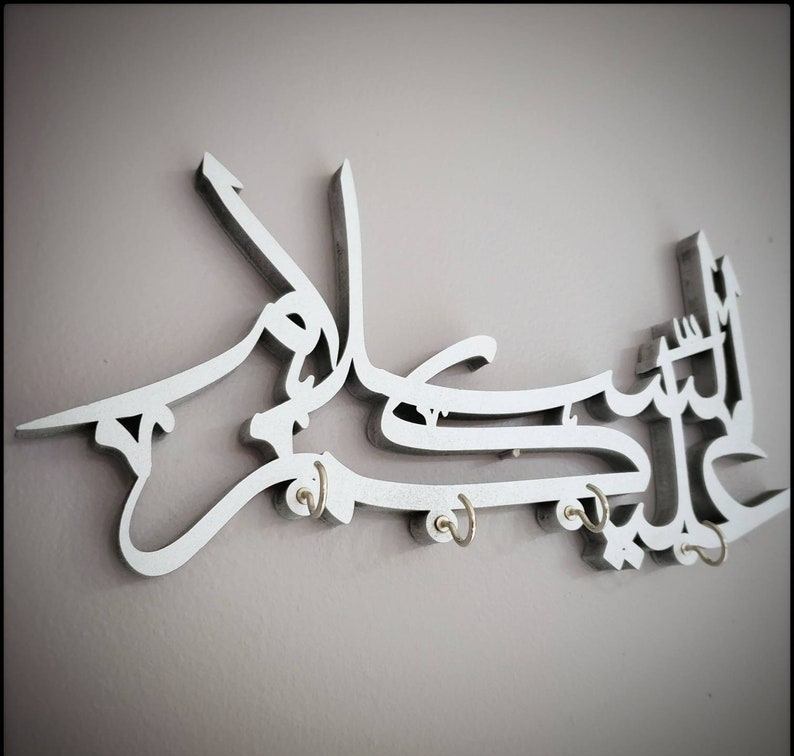 السّلام
عليكم